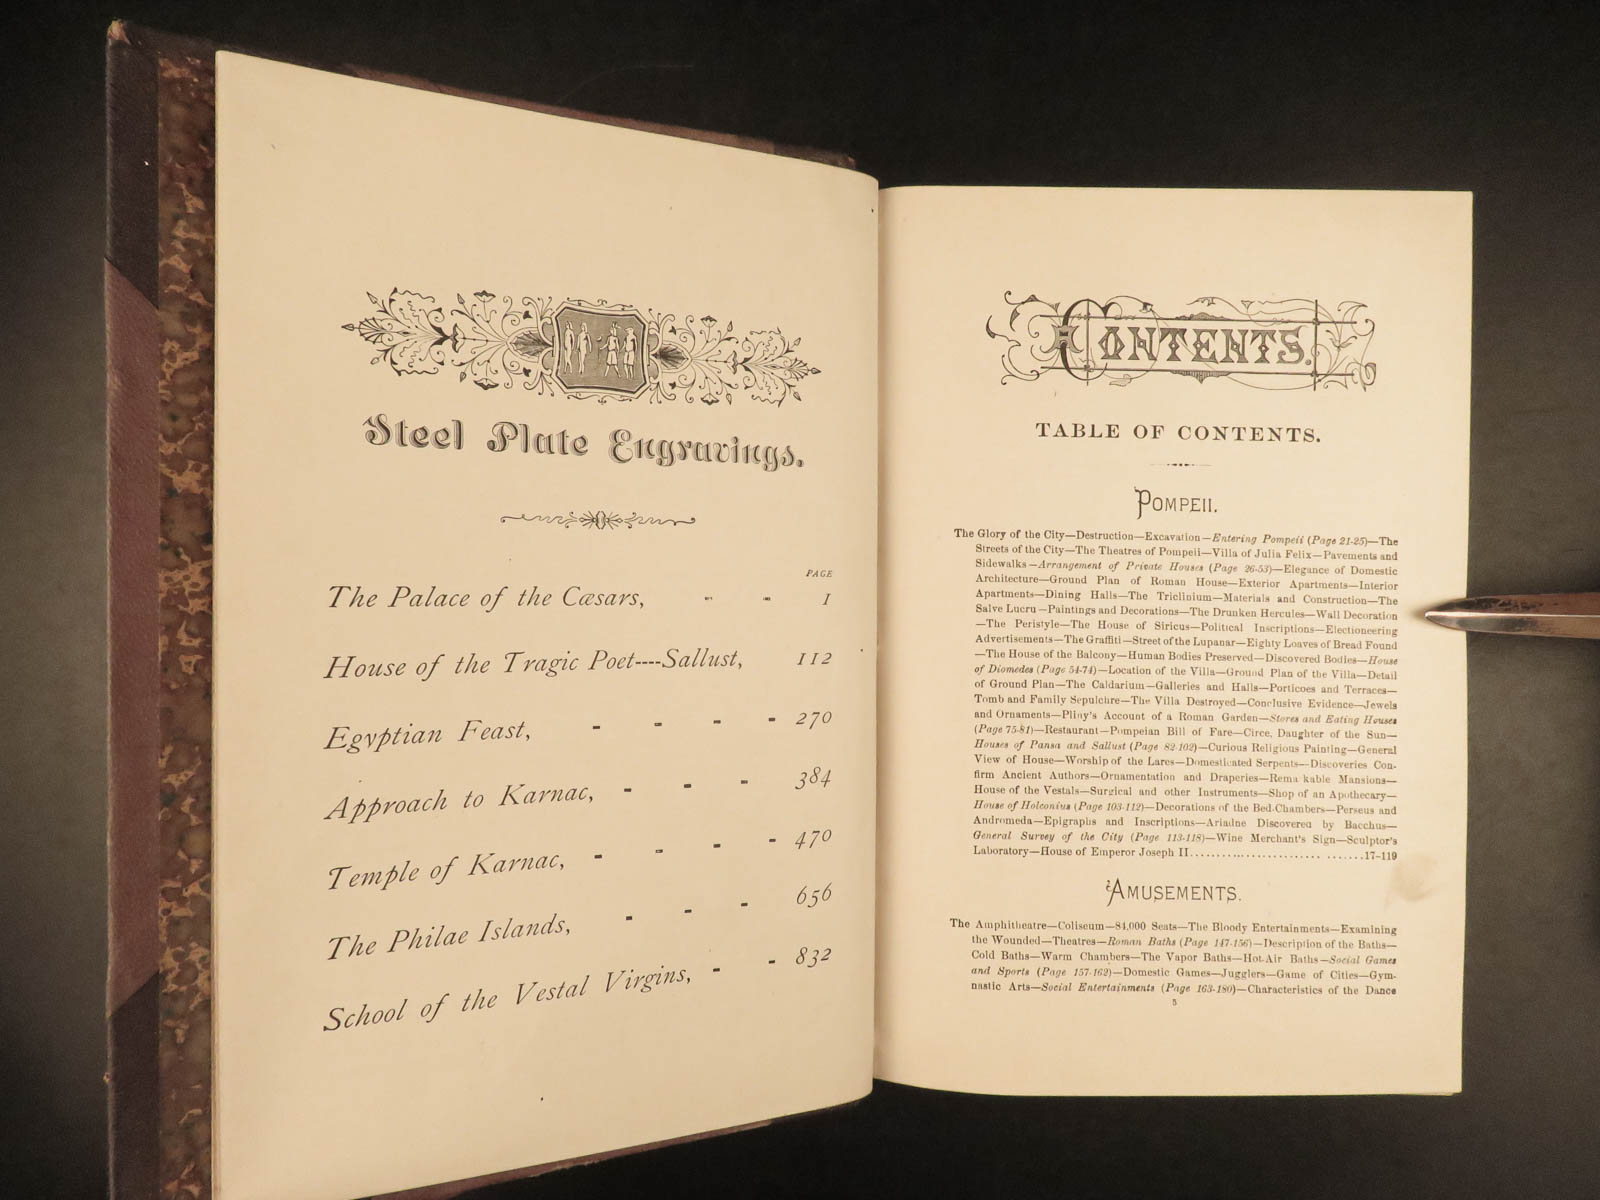 Steel Plate Engravings.
PAGE
The Palace of the Cæsars, - - 1
House of the Tragic Poet----Sallust, 112
Egyptian Feast, - - - - 270
Approach to Karnac, - - - 384
Temple of Karnac, - - - - 470
The Philae Islands, - - - 656
School of the Vestal Virgins, - - 832
CONTENTS.
TABLE OF CONTENTS.
POMPEII.
The Glory of the City—Destruction—Excavation—Entering Pompeii (Page 21-25)—The
Streets of the City—The Theatres of Pompeii—Villa of Julia Felix—Pavements and
Sidewalks—Arrangement of Private Houses (Page 26-53)—Elegance of Domestic
Architecture—Ground Plan of Roman House—Exterior Apartments—Interior
Apartments—Dining Halls—The Triclinium—Materials and Construction—The
Salve Lucru—Paintings and Decorations—The Drunken Hercules—Wall Decoration
—The Peristyle—The House of Siricus—Political Inscriptions—Electioneering
Advertisements—The Graffiti—Street of the Lupanar—Eighty Loaves of Bread Found
—The House of the Balcony—Human Bodies Preserved—Discovered Bodies—House
of Diomedes (Page 54-74)—Location of the Villa—Ground Plan of the Villa—Detail
of Ground Plan—The Caldarium—Galleries and Halls—Porticoes and Terraces—
Tomb and Family Sepulchre—The Villa Destroyed—Conclusive Evidence—Jewels
and Ornaments—Pliny's Account of a Roman Garden—Stores and Eating Houses
(Page 75-81)—Restaurant—Pompeian Bill of Fare—Circe, Daughter of the Sun—
Houses of Pansa and Sallust (Page 82-102)—Curious Religious Painting—General
View of House—Worship of the Lares—Domesticated Serpents—Discoveries Con-
firm Ancient Authors—Ornamentation and Draperies—Rema kable Mansions—
House of the Vestals—Surgical and other Instruments—Shop of an Apothecary—
House of Holconius (Page 103-112)—Decorations of the Bed-Chambers—Perseus and
Andromeda—Epigraphs and Inscriptions—Ariadne Discovered by Bacchus—
General Survey of the City (Page 113-118)—Wine Merchant's Sign—Sculptor's
Laboratory—House of Emperor Joseph II..............................17-119
AMUSEMENTS.
The Amphitheatre—Coliseum—84,000 Seats—The Bloody Entertainments—Examining
the Wounded—Theatres—Roman Baths (Page 147-156)—Description of the Baths—
Cold Baths—Warm Chambers—The Vapor Baths—Hot-Air Baths—Social Games
and Sports (Page 157-162)—Domestic Games—Jugglers—Game of Cities—Gym-
nastic Arts—Social Entertainments (Page 163-180)—Characteristics of the Dance
5